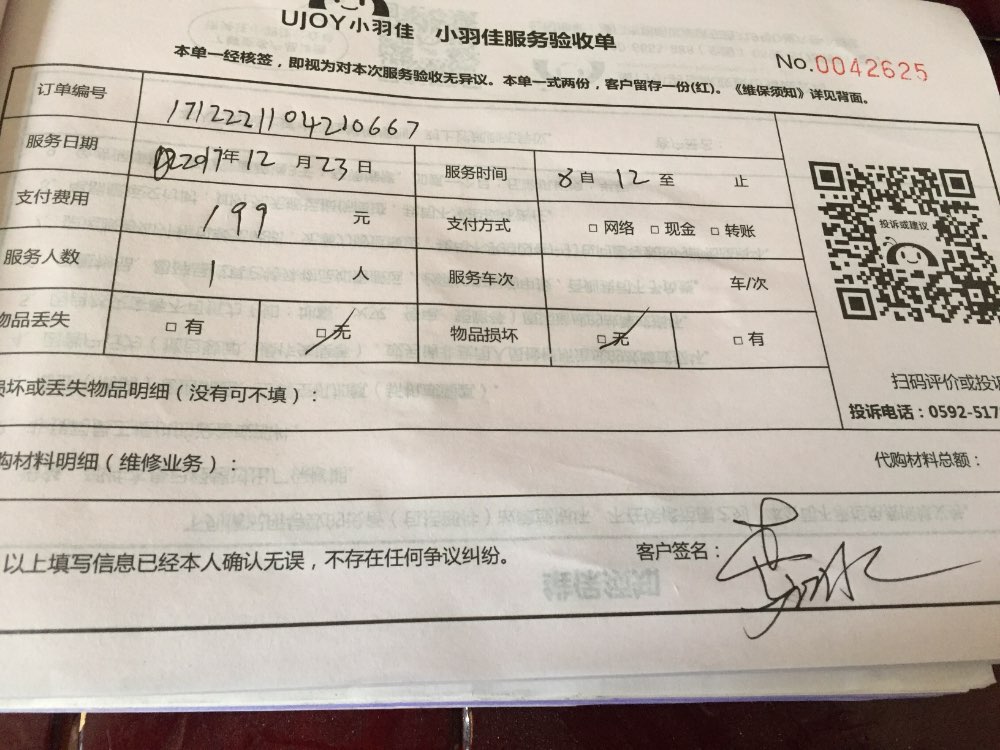 UJOY小羽佳 小羽佳服务验收单
No.0042625
本单一经核签，即视为对本次服务验收无异议。本单一式两份，客户留存一份(红)。《维保须知》详见背面。
订单编号 171222110421066７
服务日期 2017年12月23日 服务时间 8自12至 止
支付费用 199 元 支付方式 □网络 □现金 □转账
服务人数 1 人 服务车次 车/次
物品丢失 □有 □无 物品损坏 □无 □有
投诉或建议
损坏或丢失物品明细（没有可不填）：
扫码评价或投诉
投诉电话：0592-517
购材料明细（维修业务）： 代购材料总额：
以上填写信息已经本人确认无误，不存在任何争议纠纷。 客户签名：